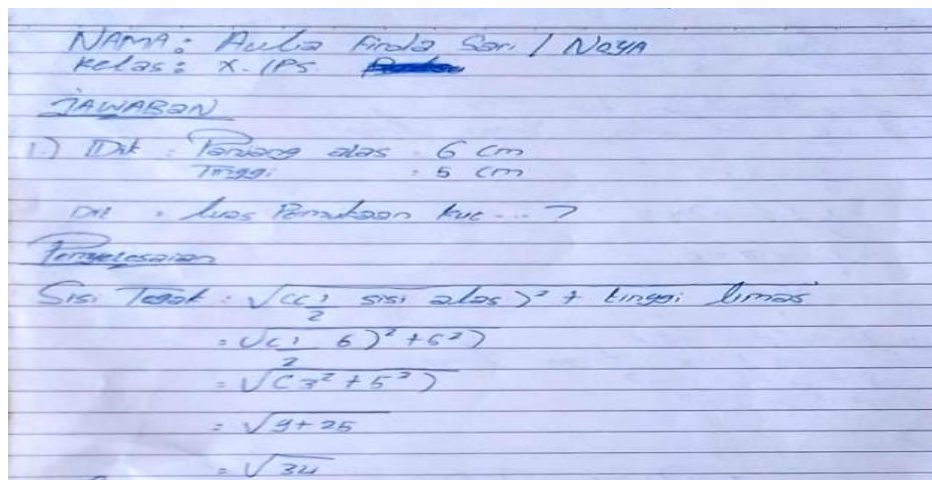 NAMA : Aulia Firda Sari / NasyA
Kelas : X - IPS
JAWABAN
1.) Dik : Panjang alas : 6 cm
Tinggi : 5 cm
Dit : luas Permukaan kue .... ?
Penyelesaian
Sisi Tegak : √((1/2 sisi alas)² + tinggi limas
= √(1/2 6)² + 5²)
= √(3² + 5²)
= √9 + 25
= √34